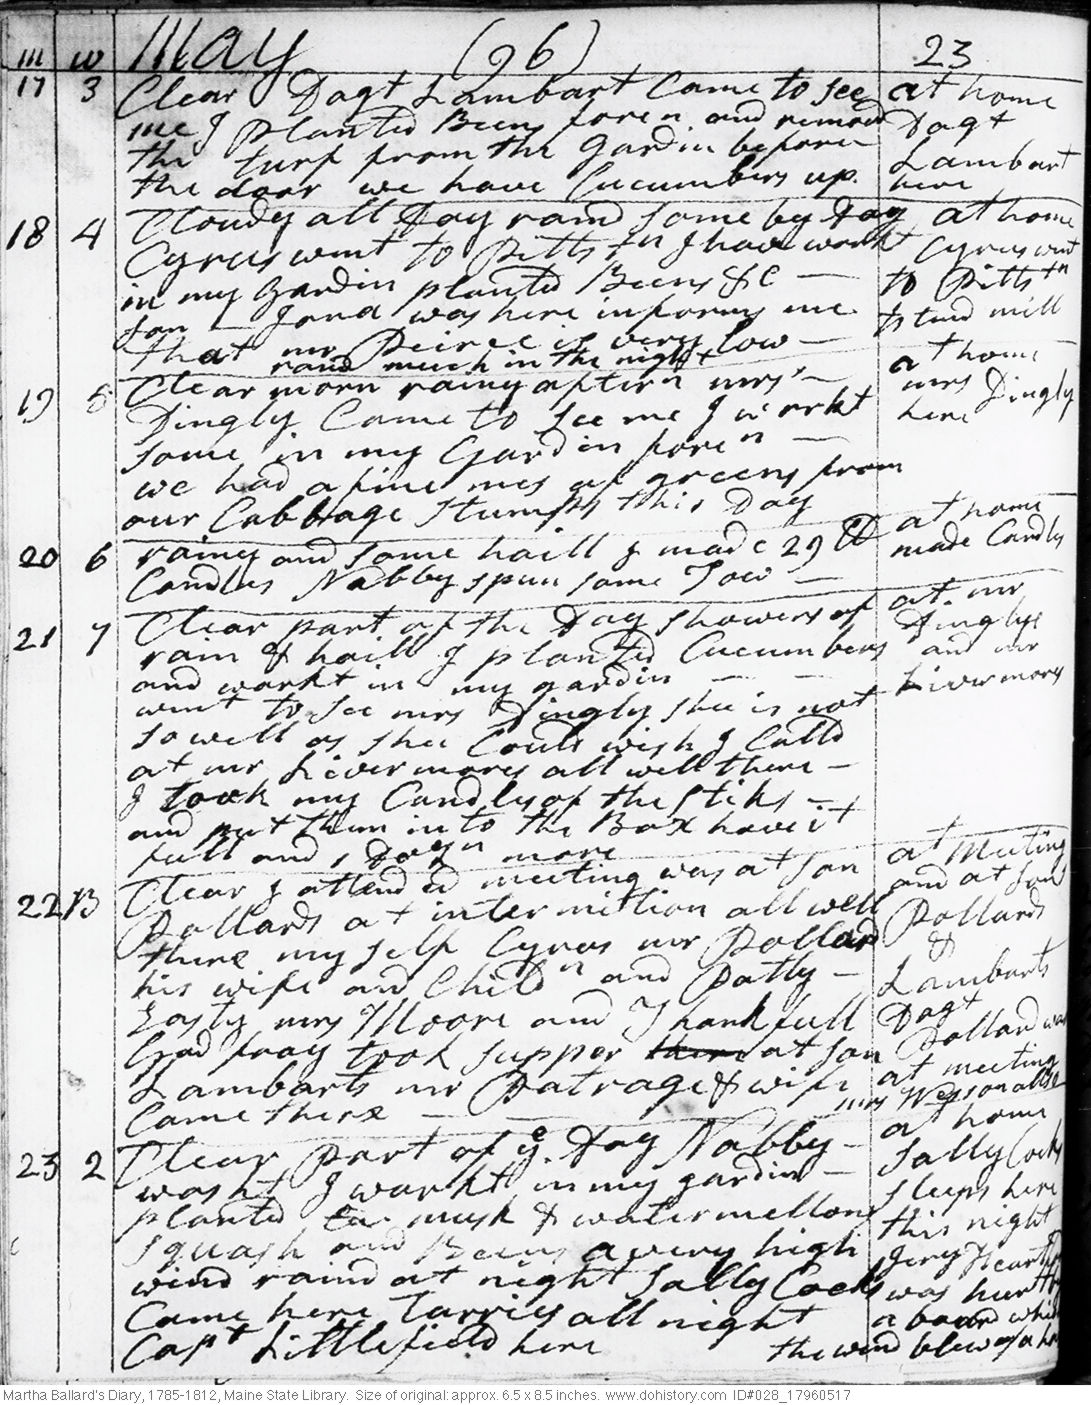 m w May (96) 23
17 3 Clear Dagt Lambart Came to see
me I planted Beens foren and removd
the turf from the Gardin before
the door we have Cucumbers up.
at home
Dagt
Lambart
here
18 4 Cloudy all Day raind some by Day
Cyrus went to Pitts tn I have workt
in my Gardin planted Beens &C —
Son Jona was here informs me
that mr Peirce is very low —
raind much in the night
at home
Cyrus went
to Pitts tn
to tend mill
19 5 Clear morn rainy aftern mrs —
Dingly Came to see me I workt
some in my Gardin foren —
we had a fine mes of greens from
our Cabbage Stumps this Day
at home
mrs Dingly
here
20 6 rainy and some haill I made 29 lb
Candles Nabby spun some Tow —
at home
made Candls
21 7 Clear part of the Day showers of
rain & haill I planted Cucumbers
and workt in my gardin — —
went to see mrs Dingly shee is not
so well as shee Could wish I Calld
at mr Livermores all well there —
I took my Candles of the stiks —
and put them into the Box have it
full and 1 Dozn more
at mr
Dinglys
and mr
Livermores
22 B Clear I attended meeting was at son
Pollards at intermition all well
there my self Cyrus mr Pollard
his wife and Childn and Patty —
Easty mrs Moore and Thankfull
Gad fray took supper there at son
Lambarts mr Patrage & wife
Came there —
at meeting
and at sons
Pollards
&
Lambarts
Dagt
Pollard was
at meeting
mrs Wesson allso
23 2 Clear part of ye Day Nabby —
washt I workt in my gardin —
planted musk & water mellons
squash and Beens a very high
wind raind at night Sally Cocks
Came here Tarries all night
Capt Littlefield here
at home
Sally Cocks
sleeps here
this night
Jery
was hurt by
a board which
the wind blew of a
Martha Ballard's Diary, 1785-1812, Maine State Library. Size of original: approx. 6.5 x 8.5 inches. www.dohistory.com ID#028_17960517